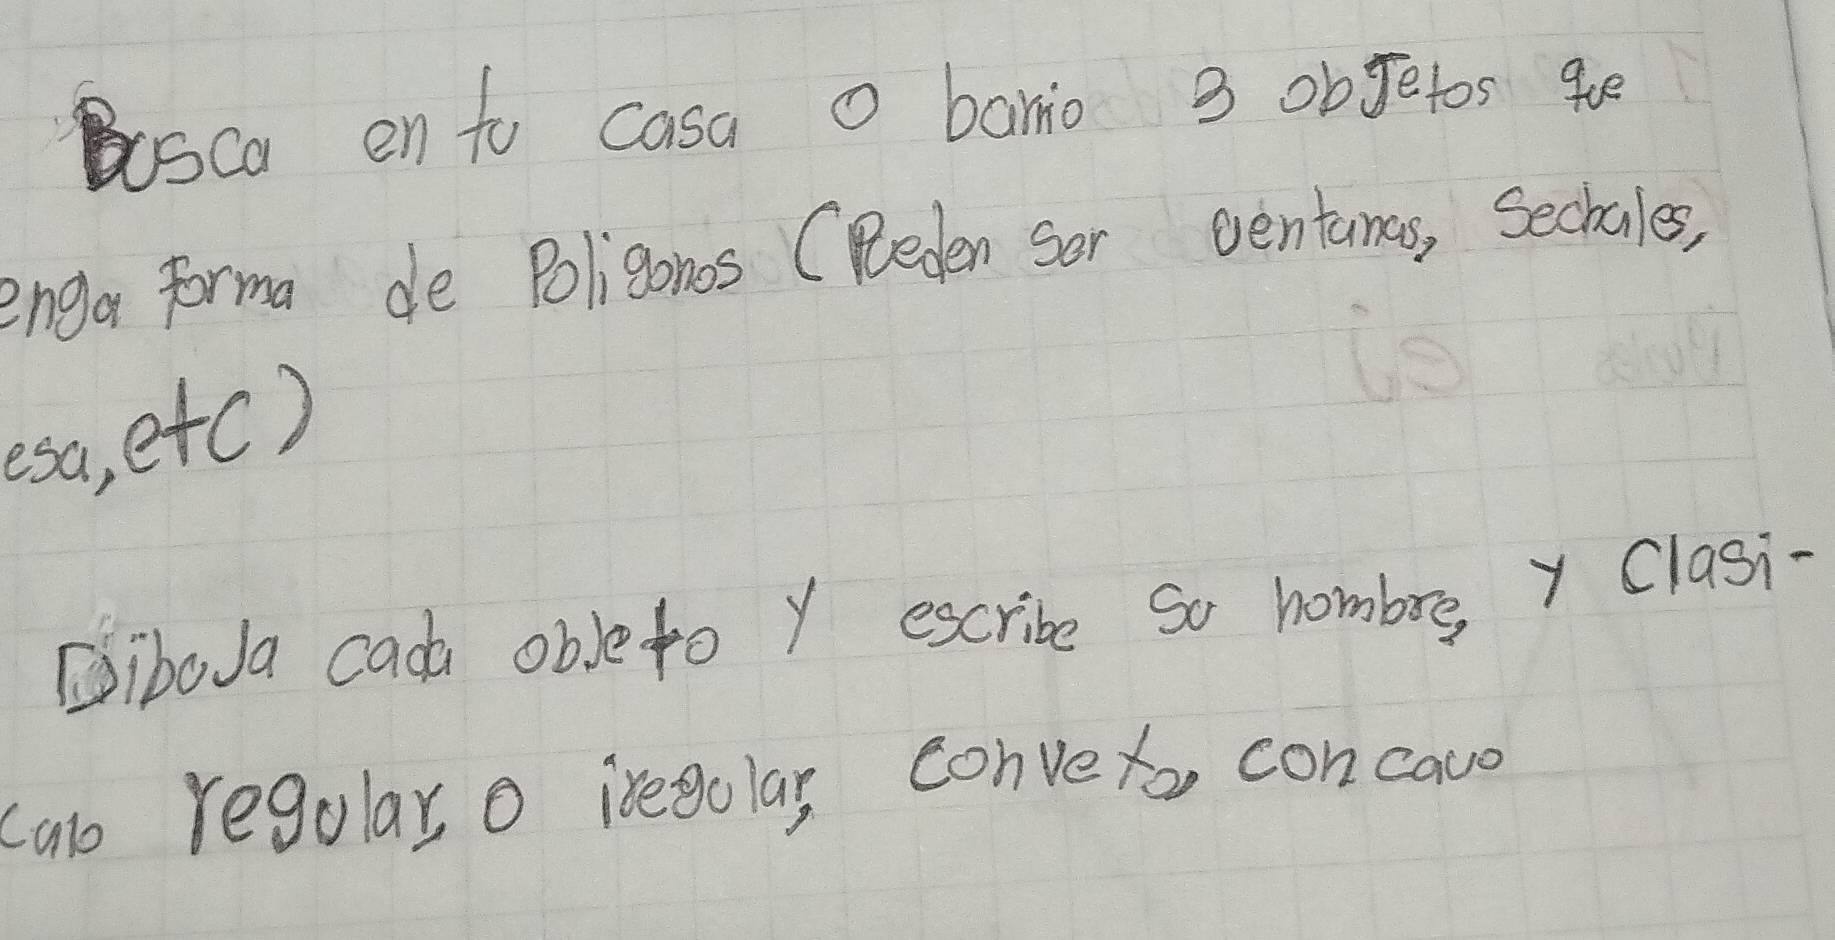 Busca en tu casa o barrio 3 objetos que
enga forma de Poligonos (Pueden ser ventanas, Sechales,
esa, etc)
Dibuja cada objeto y escribe su nombre, y Clasi-
calo regular, o iregular, convexo, concavo